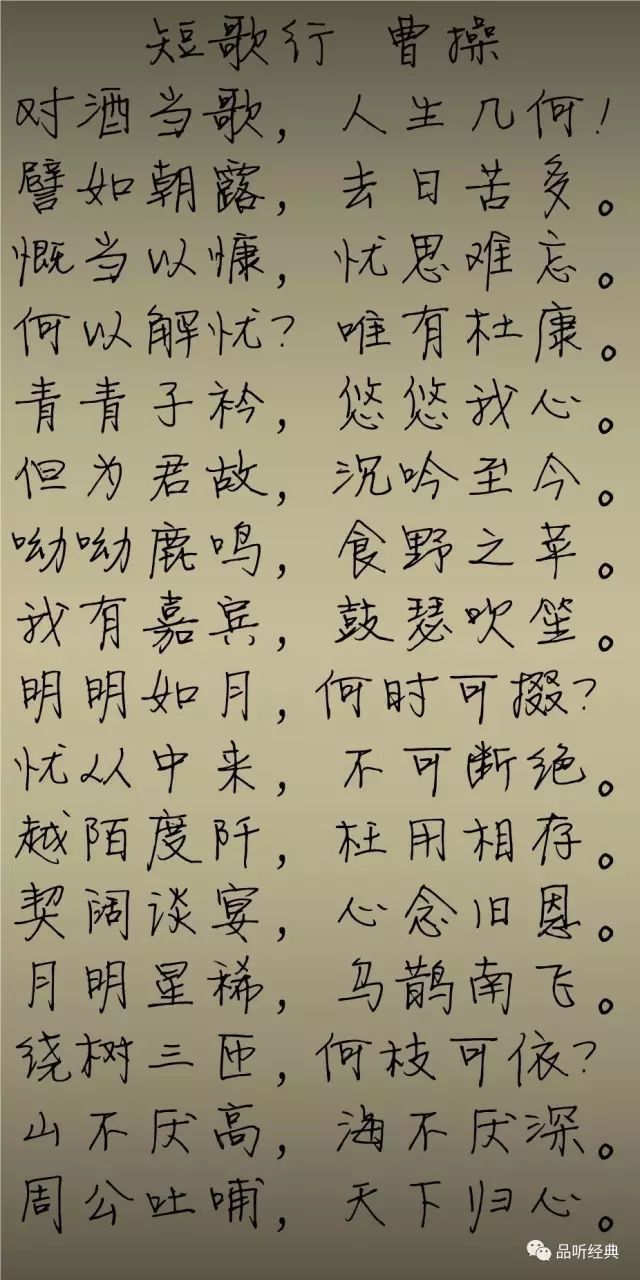 短歌行 曹操
对酒当歌，人生几何！
譬如朝露，去日苦多。
慨当以慷，忧思难忘。
何以解忧？唯有杜康。
青青子衿，悠悠我心。
但为君故，沉吟至今。
呦呦鹿鸣，食野之苹。
我有嘉宾，鼓瑟吹笙。
明明如月，何时可掇？
忧从中来，不可断绝。
越陌度阡，枉用相存。
契阔谈宴，心念旧恩。
月明星稀，乌鹊南飞。
绕树三匝，何枝可依？
山不厌高，海不厌深。
周公吐哺，天下归心。
品听经典